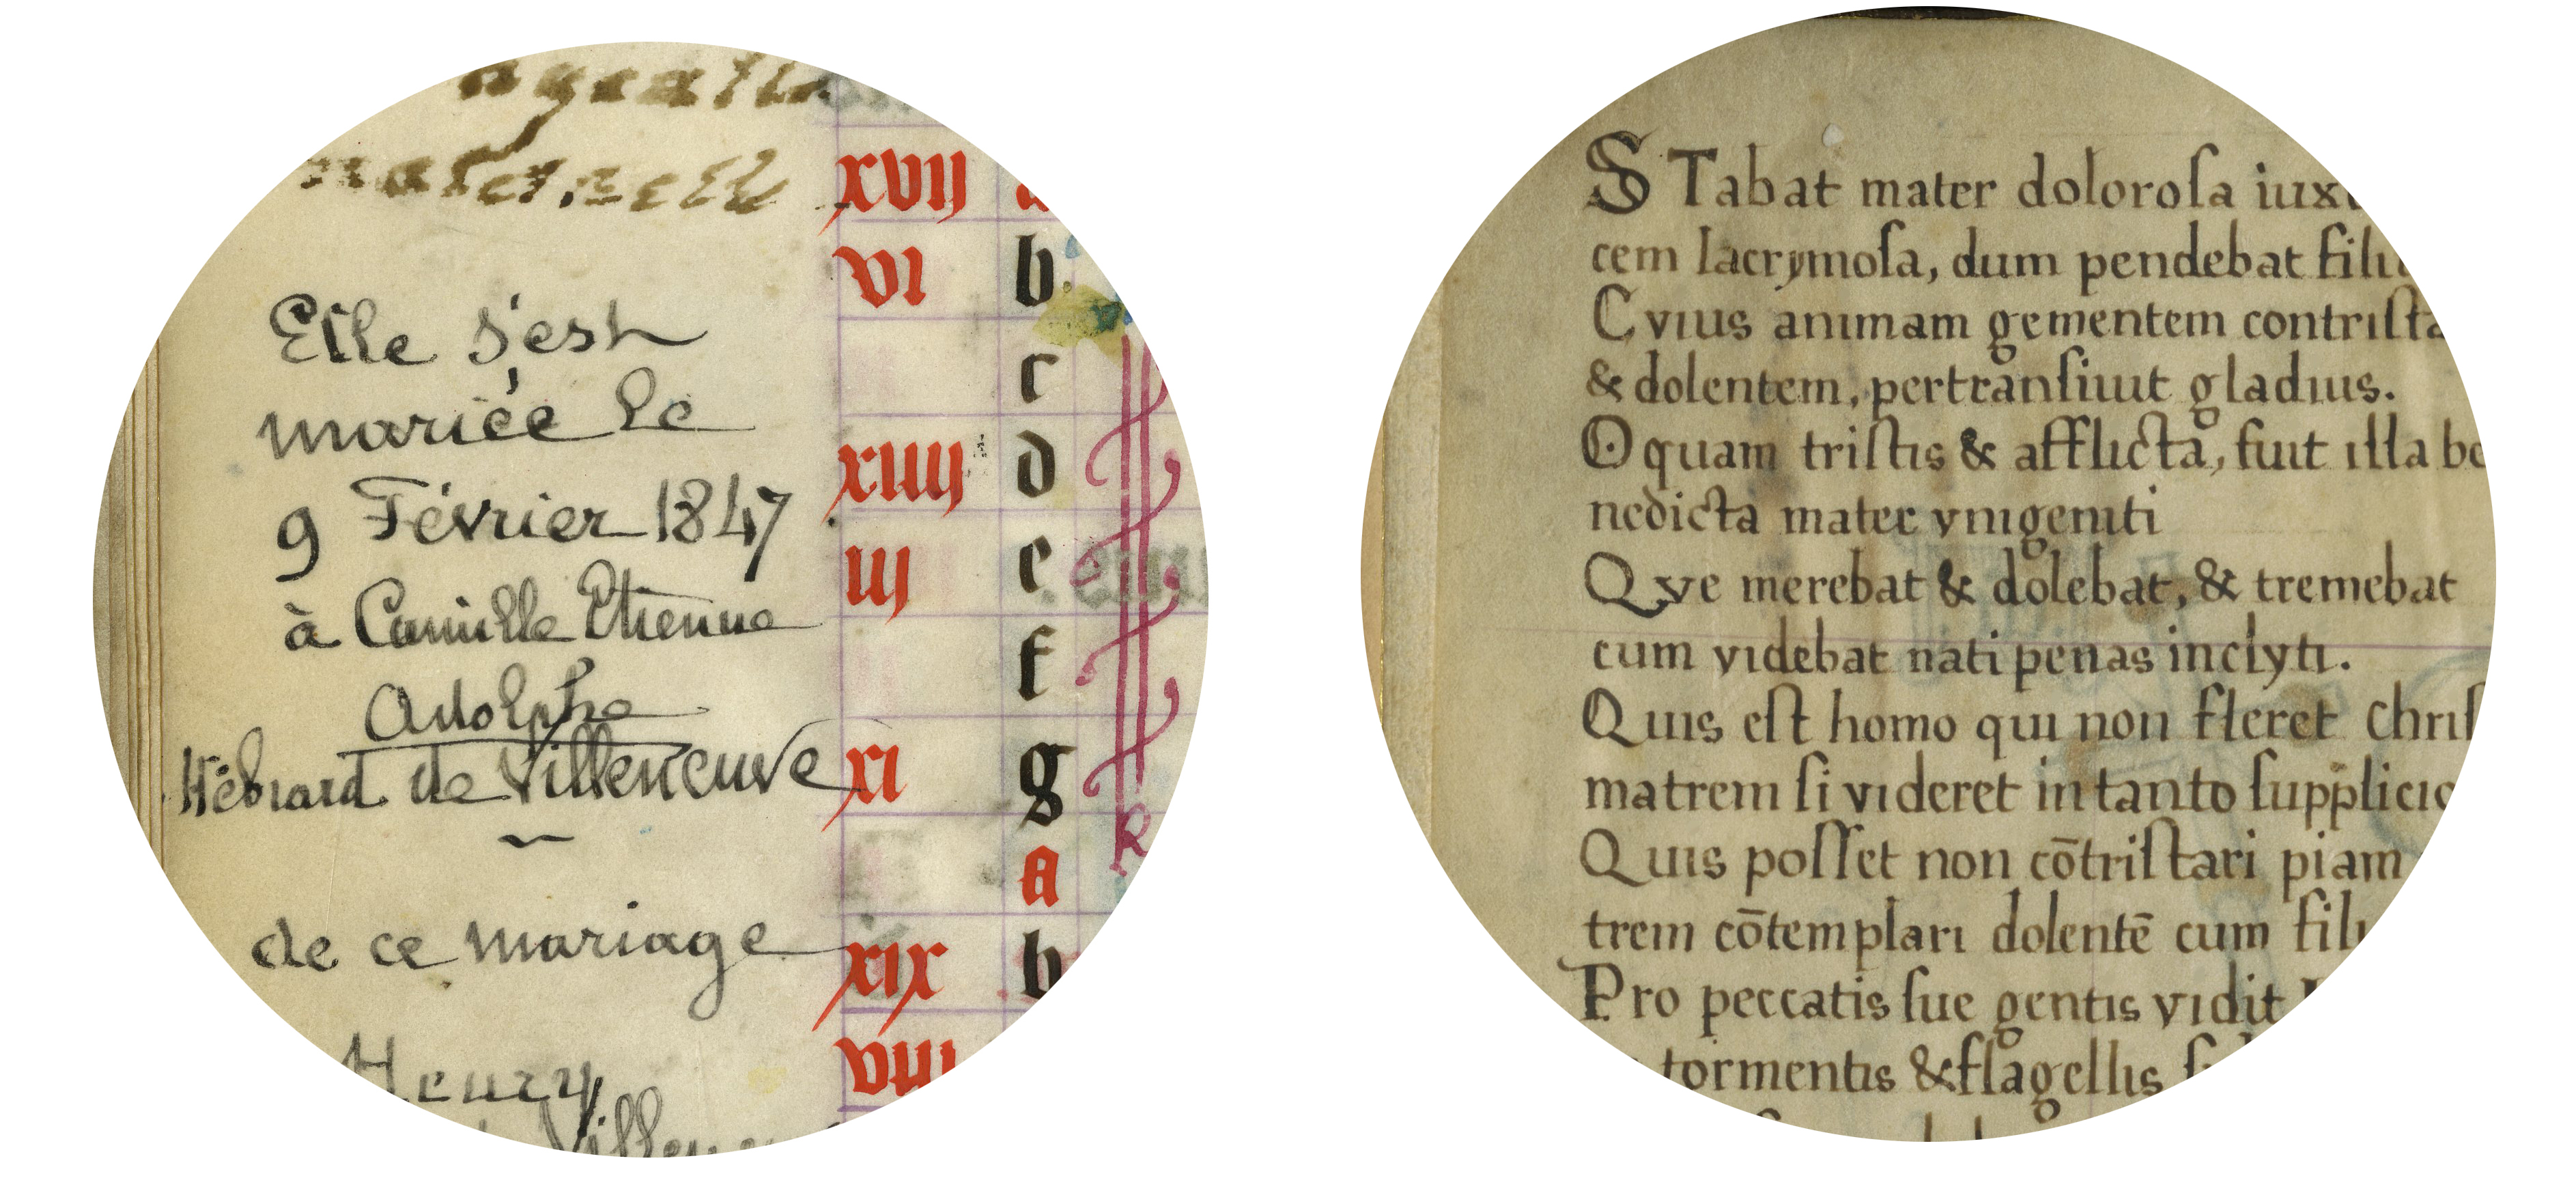 Elle s'est
mariée le
9 Février 1847
à Camille Etienne
Adolphe
Hébrard de Villeneuve
de ce mariage
Henry
xvij
vi
xiiij
iij
xi
xix
viij
b
c
d
e
f
g
A
b
R
STabat mater doloroſa
cem lacrymoſa, dum pendebat
Cvius animam gementem
& dolentem, pertranſiuit gladius.
O quam triſtis & afflicta, fuit illa be
nedicta mater vnigeniti
Qve merebat & dolebat, & tremebat
cum videbat nati penas inclyti.
Quis eſt homo qui non fleret
matrem ſi videret in tanto ſupplicio
Quis poſſet non cōtriſtari piam
trem cōtemplari dolentē cum
Pro peccatis ſue gentis vidit
tormentis & flagellis